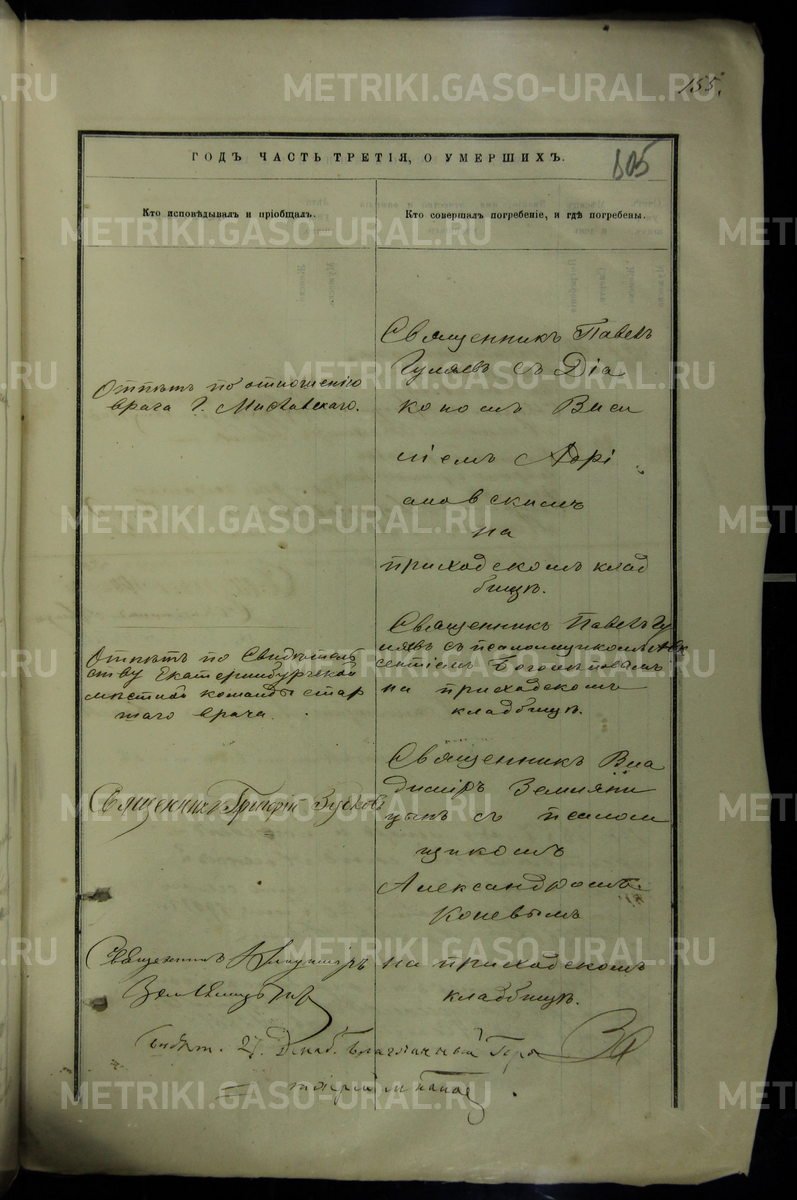 METRIKI.GASO-URAL.RU
155.
ГОДЪ ЧАСТЬ ТРЕТІЯ, О УМЕРШИХЪ.
605
Кто исповѣдывалъ и пріобщалъ.
Кто совершалъ погребеніе, и гдѣ погребены.
Отпѣтъ по отношенію
врача Г. Миславскаго.
Священникъ Павелъ
Гуляевъ съ Діа
кономъ Васи
ліемъ Адрі
ановскимъ
на
приходскомъ клад
бищѣ.
Отпѣтъ по Свидѣтель
ству Екатеринбургской
мѣстной команды стар
шаго врача.
Священникъ Павелъ Гу
ляевъ съ псаломщикомъ Авк
сентіемъ
на приходскомъ
кладбищѣ.
Священникъ Григорій
Священникъ Вла
диміръ Земляни
цынъ съ псалом
щикомъ
Александромъ
Коневымъ
на приходскомъ
кладбищѣ.
Священникъ Владиміръ
Земляницынъ
27 Декаб. Благочинный